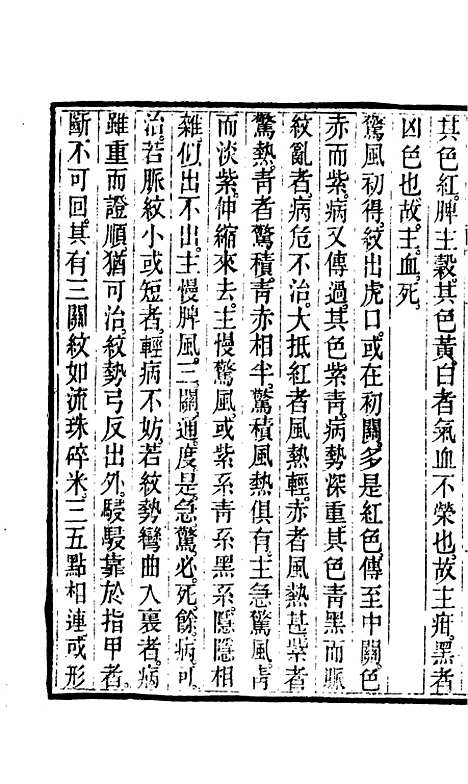 其色紅。脾主穀。其色黃。白者氣血不榮也。故主疳。黑者
凶色也。故主血死。
驚風初得。紋出虎口。或在初關。多是紅色。傳至中關。色
赤而紫。病又傳過。其色紫青。病勢深重。其色青黑而脈
紋亂者。病危不治。大抵紅者風熱輕。赤者風熱甚。紫者
驚熱。青者驚積。青赤相半。驚積風熱俱有。主急驚風。青
而淡紫。伸縮來去。主慢驚風。或紫系青系黑系。隱隱相
雜。似出不出。主慢脾風。三關通度。是急驚必死。餘病可
治。若脈紋小或短者。輕病不妨。若紋勢彎曲入裏者。病
雖重而證順。猶可治。紋勢弓反出外。駸駸靠於指甲者。
斷不可回。其有三關紋如流珠碎米。三五點相連或形